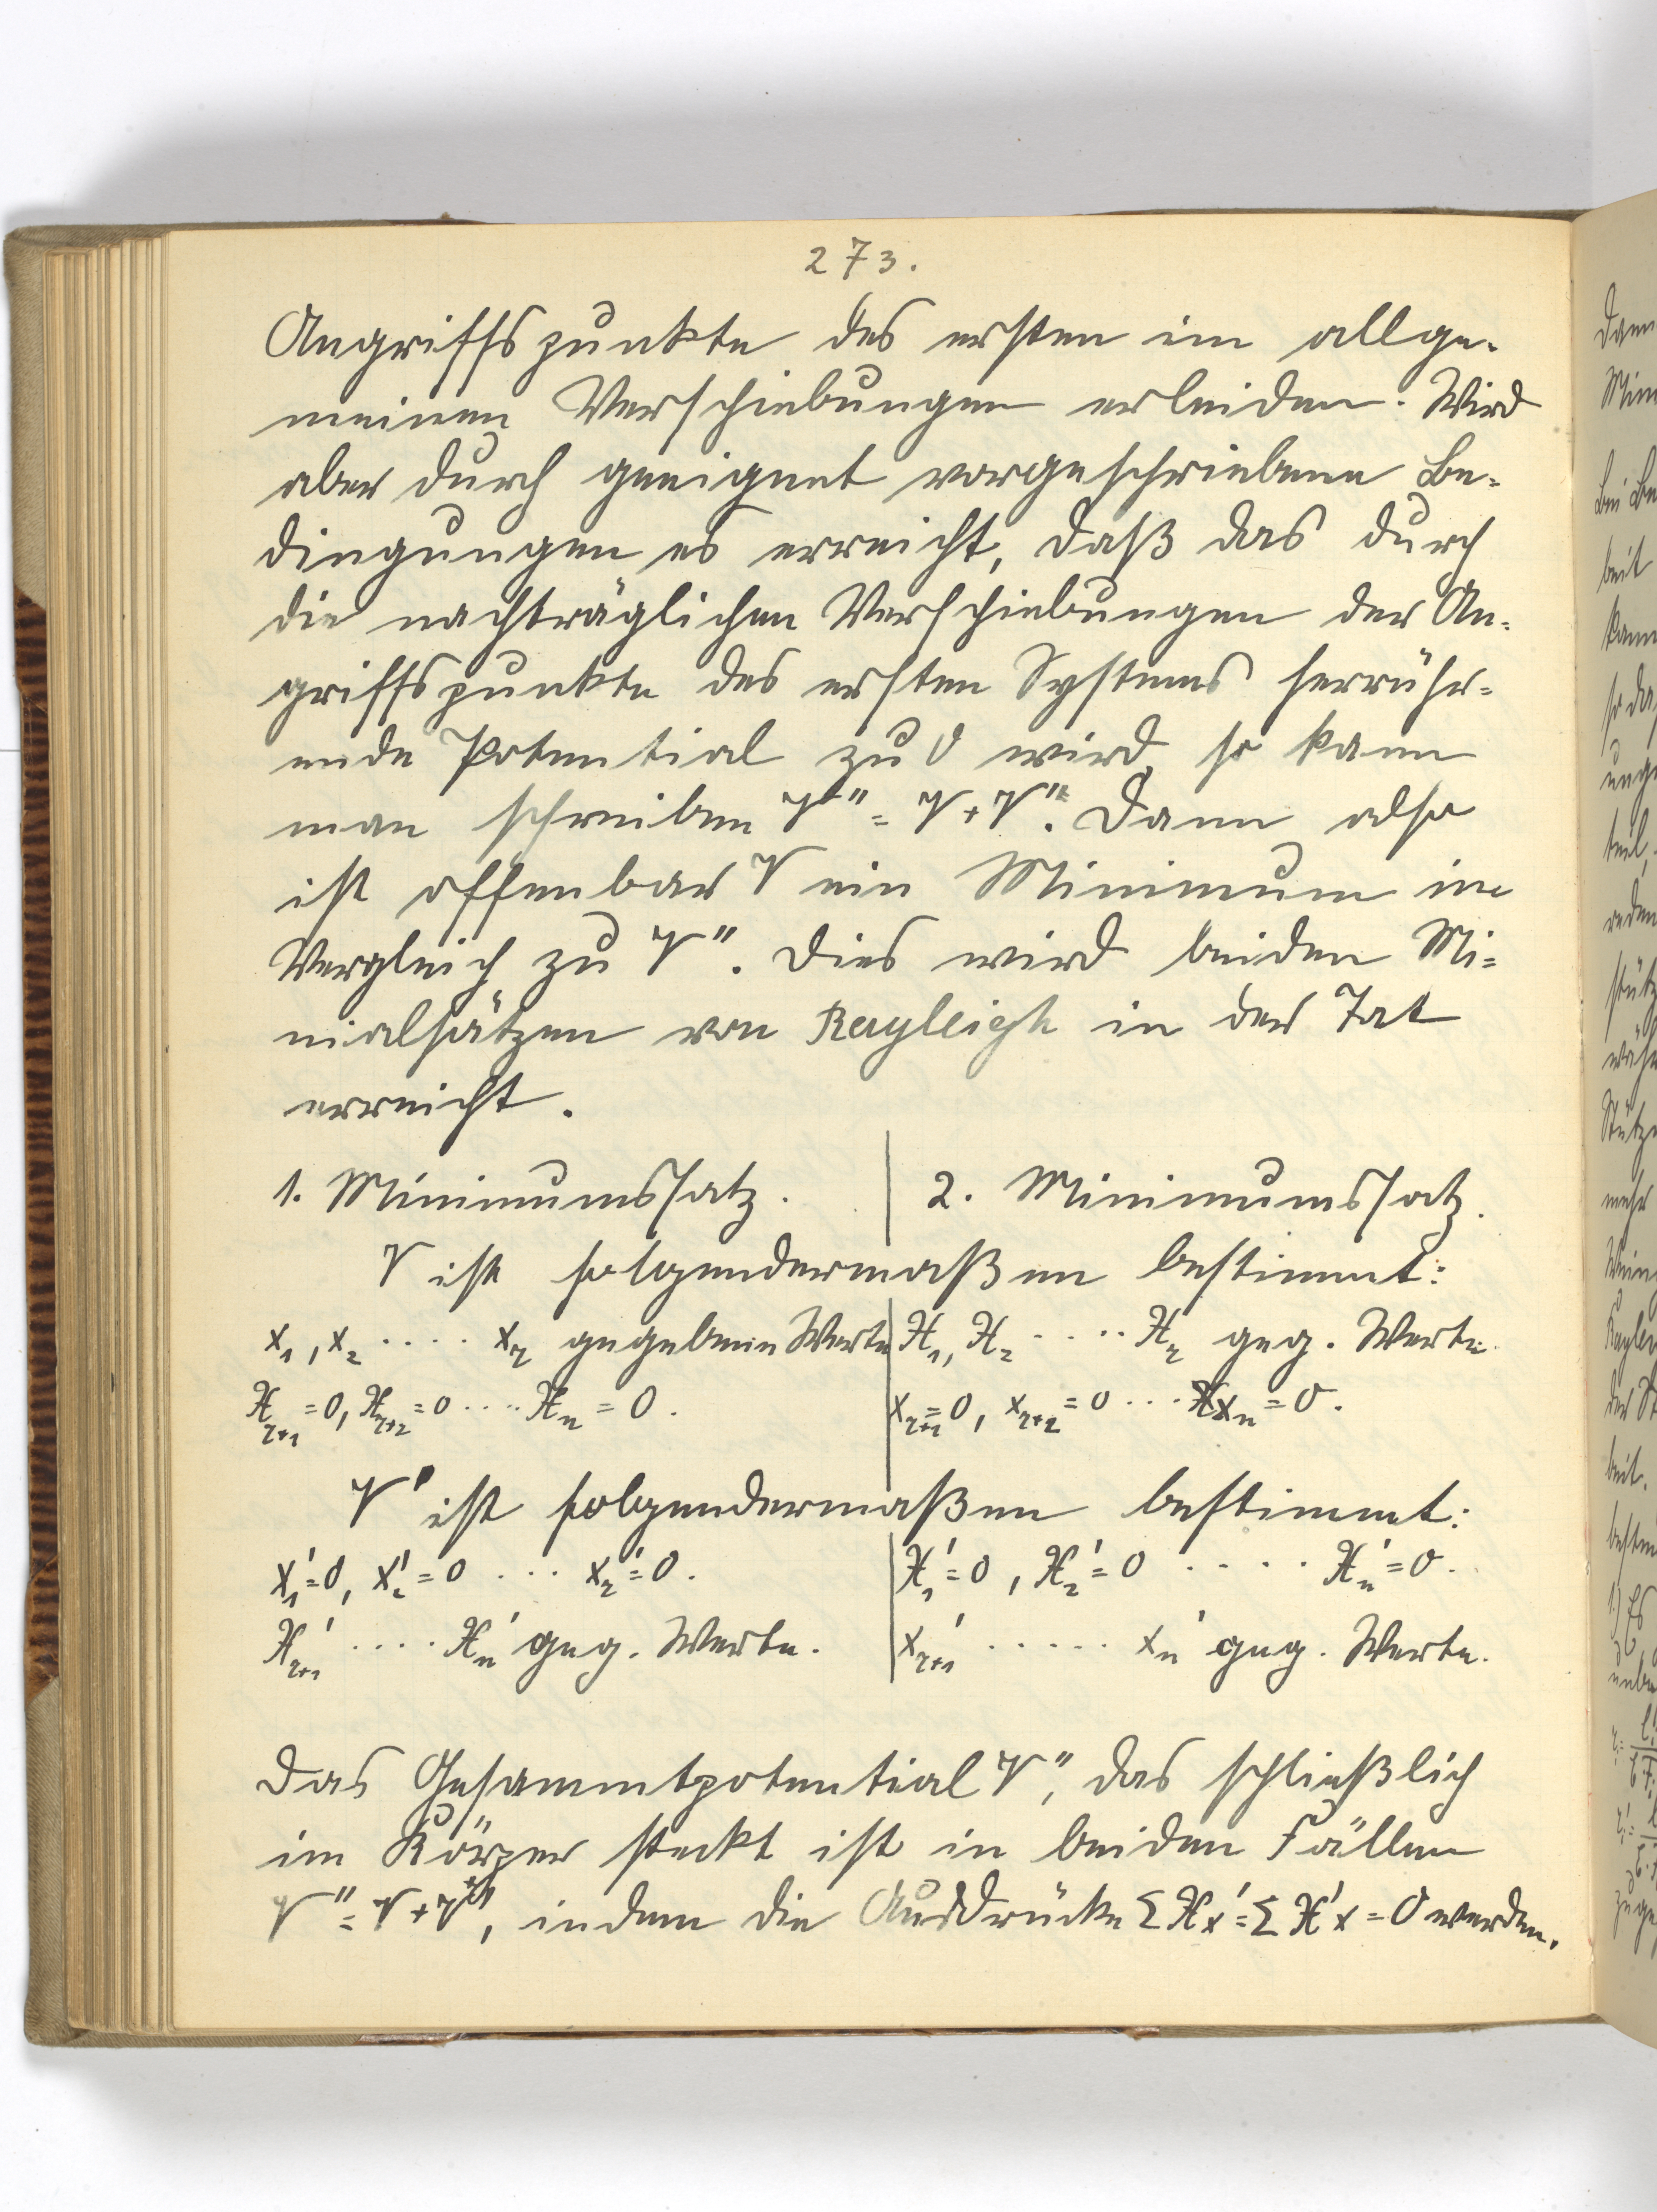 273.
Angriffspunkte des ersten im allge-
meinen Verschiebungen erleiden. Wird
aber durch geeignet vorgeschriebene Be-
dingungen es erreicht, daß das durch
die nachträglichen Verschiebungen der An-
griffspunkte des ersten Systems herrühr-
ende Potential zu 0 wird, so kann
man schreiben V'' = V + V'. Dann also
ist offenbar V ein Minimum im
Vergleich zu V''. Dies wird beiden Mi-
nialsätzen von Rayleigh in der Tat
erreicht.
1. Minimumssatz. | 2. Minimumssatz.
V ist folgendermaßen bestimmt:
x₁, x₂ .... x_r gegebene Werte | X₁, X₂ .... X_r geg. Werte.
X_{r+1} = 0, X_{r+2} = 0 .... X_n = 0. | x_{r+1} = 0, x_{r+2} = 0 ... x_n = 0.
V' ist folgendermaßen bestimmt:
x₁' = 0, x₂' = 0 ... x_r' = 0. | X₁' = 0, X₂' = 0 .... X_n' = 0.
X_{r+1}' .... X_n' geg. Werte. | x_{r+1}' ..... x_n' geg. Werte.
Das Gesammtpotential V'', das schließlich
im Körper steckt ist in beiden Fällen
V'' = V + V', indem die Ausdrücke ΣXx' = ΣX'x = 0 werden.